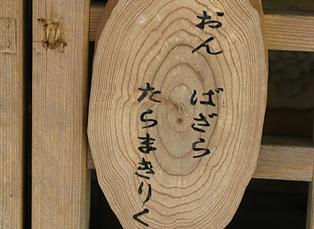 おん ばざら
たらまきりく